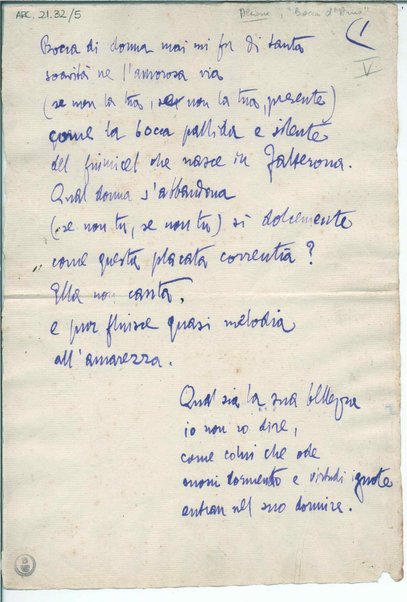 ARC. 21.32/5
Alcione, "Bocca d'Arno"
V
Bocca di donna mai mi fu di tanta
soavità ne l'amorosa via
(se non la tua, se non la tua, presente)
come la bocca pallida e silente
del fiumicel che nasce in Falterona.
Qual donna s'abbandona
(se non tu, se non tu) sì dolcemente
come questa placata correntìa?
Ella non canta,
e pur fluisce quasi melodìa
all'amarezza.
Qual sia la sua bellezza
io non so dire,
come colui che ode
suoni dormendo e virtudi ignote
entran nel suo dormire.